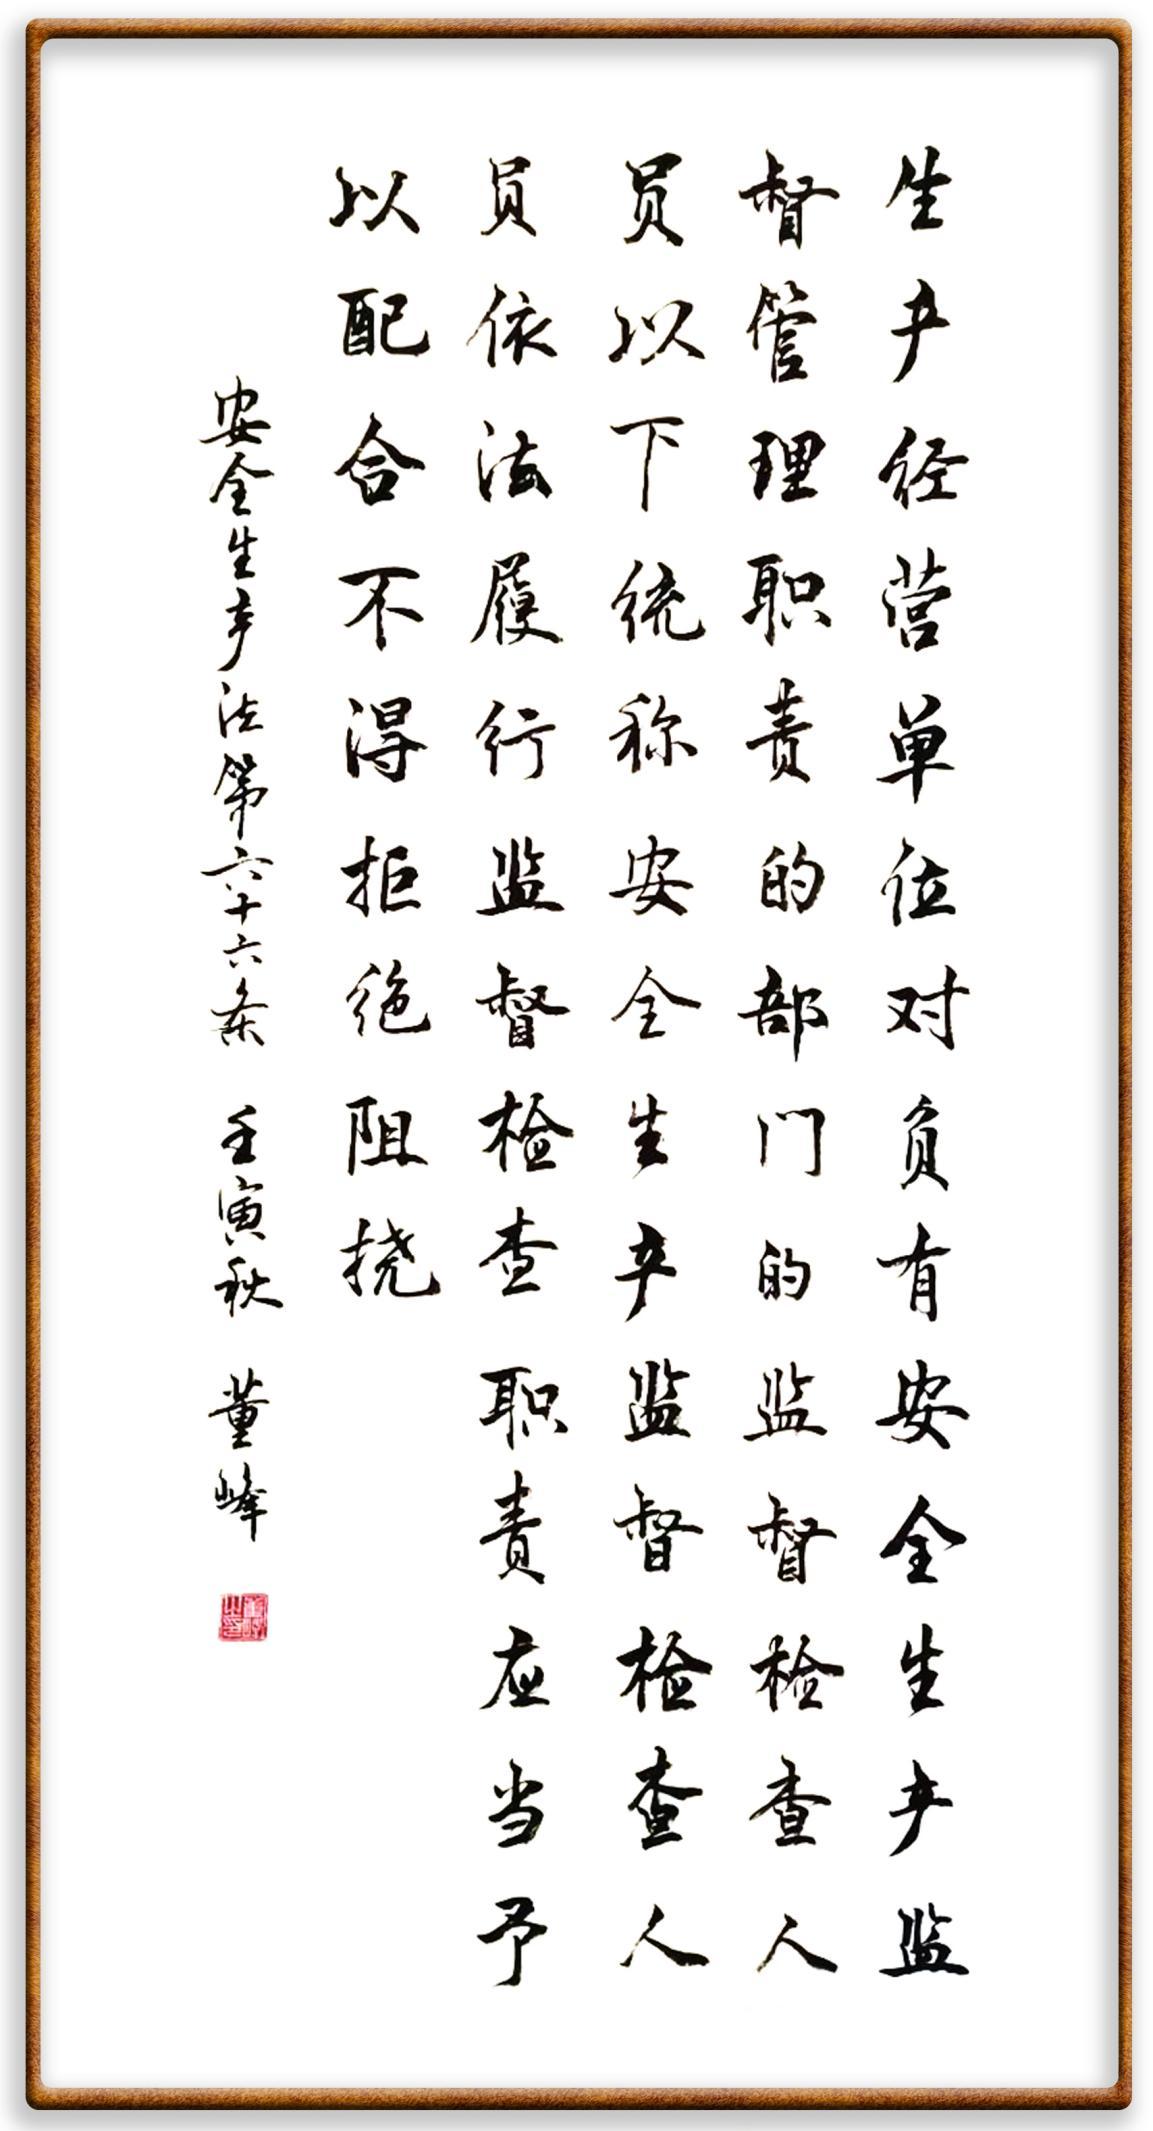 生产经营单位对负有安全生产监
督管理职责的部门的监督检查人
员以下统称安全生产监督检查人
员依法履行监督检查职责应当予
以配合不得拒绝阻挠
安全生产法第六十六条 壬寅秋 董峰